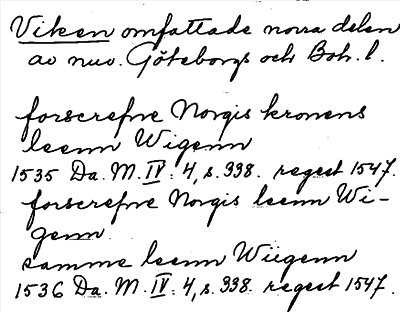 Viken omfattade norra delen
av nuv. Göteborgs och Boh. l.
forscrefne Norgis kronens
leenn Wigenn
1535 Da. M. IV: 4, s. 338. regest 1547.
forscrefne Norgis leenn Wi-
genn.
samme leenn Wiigenn
1536 Da. M. IV: 4, s. 338. regest 1547.